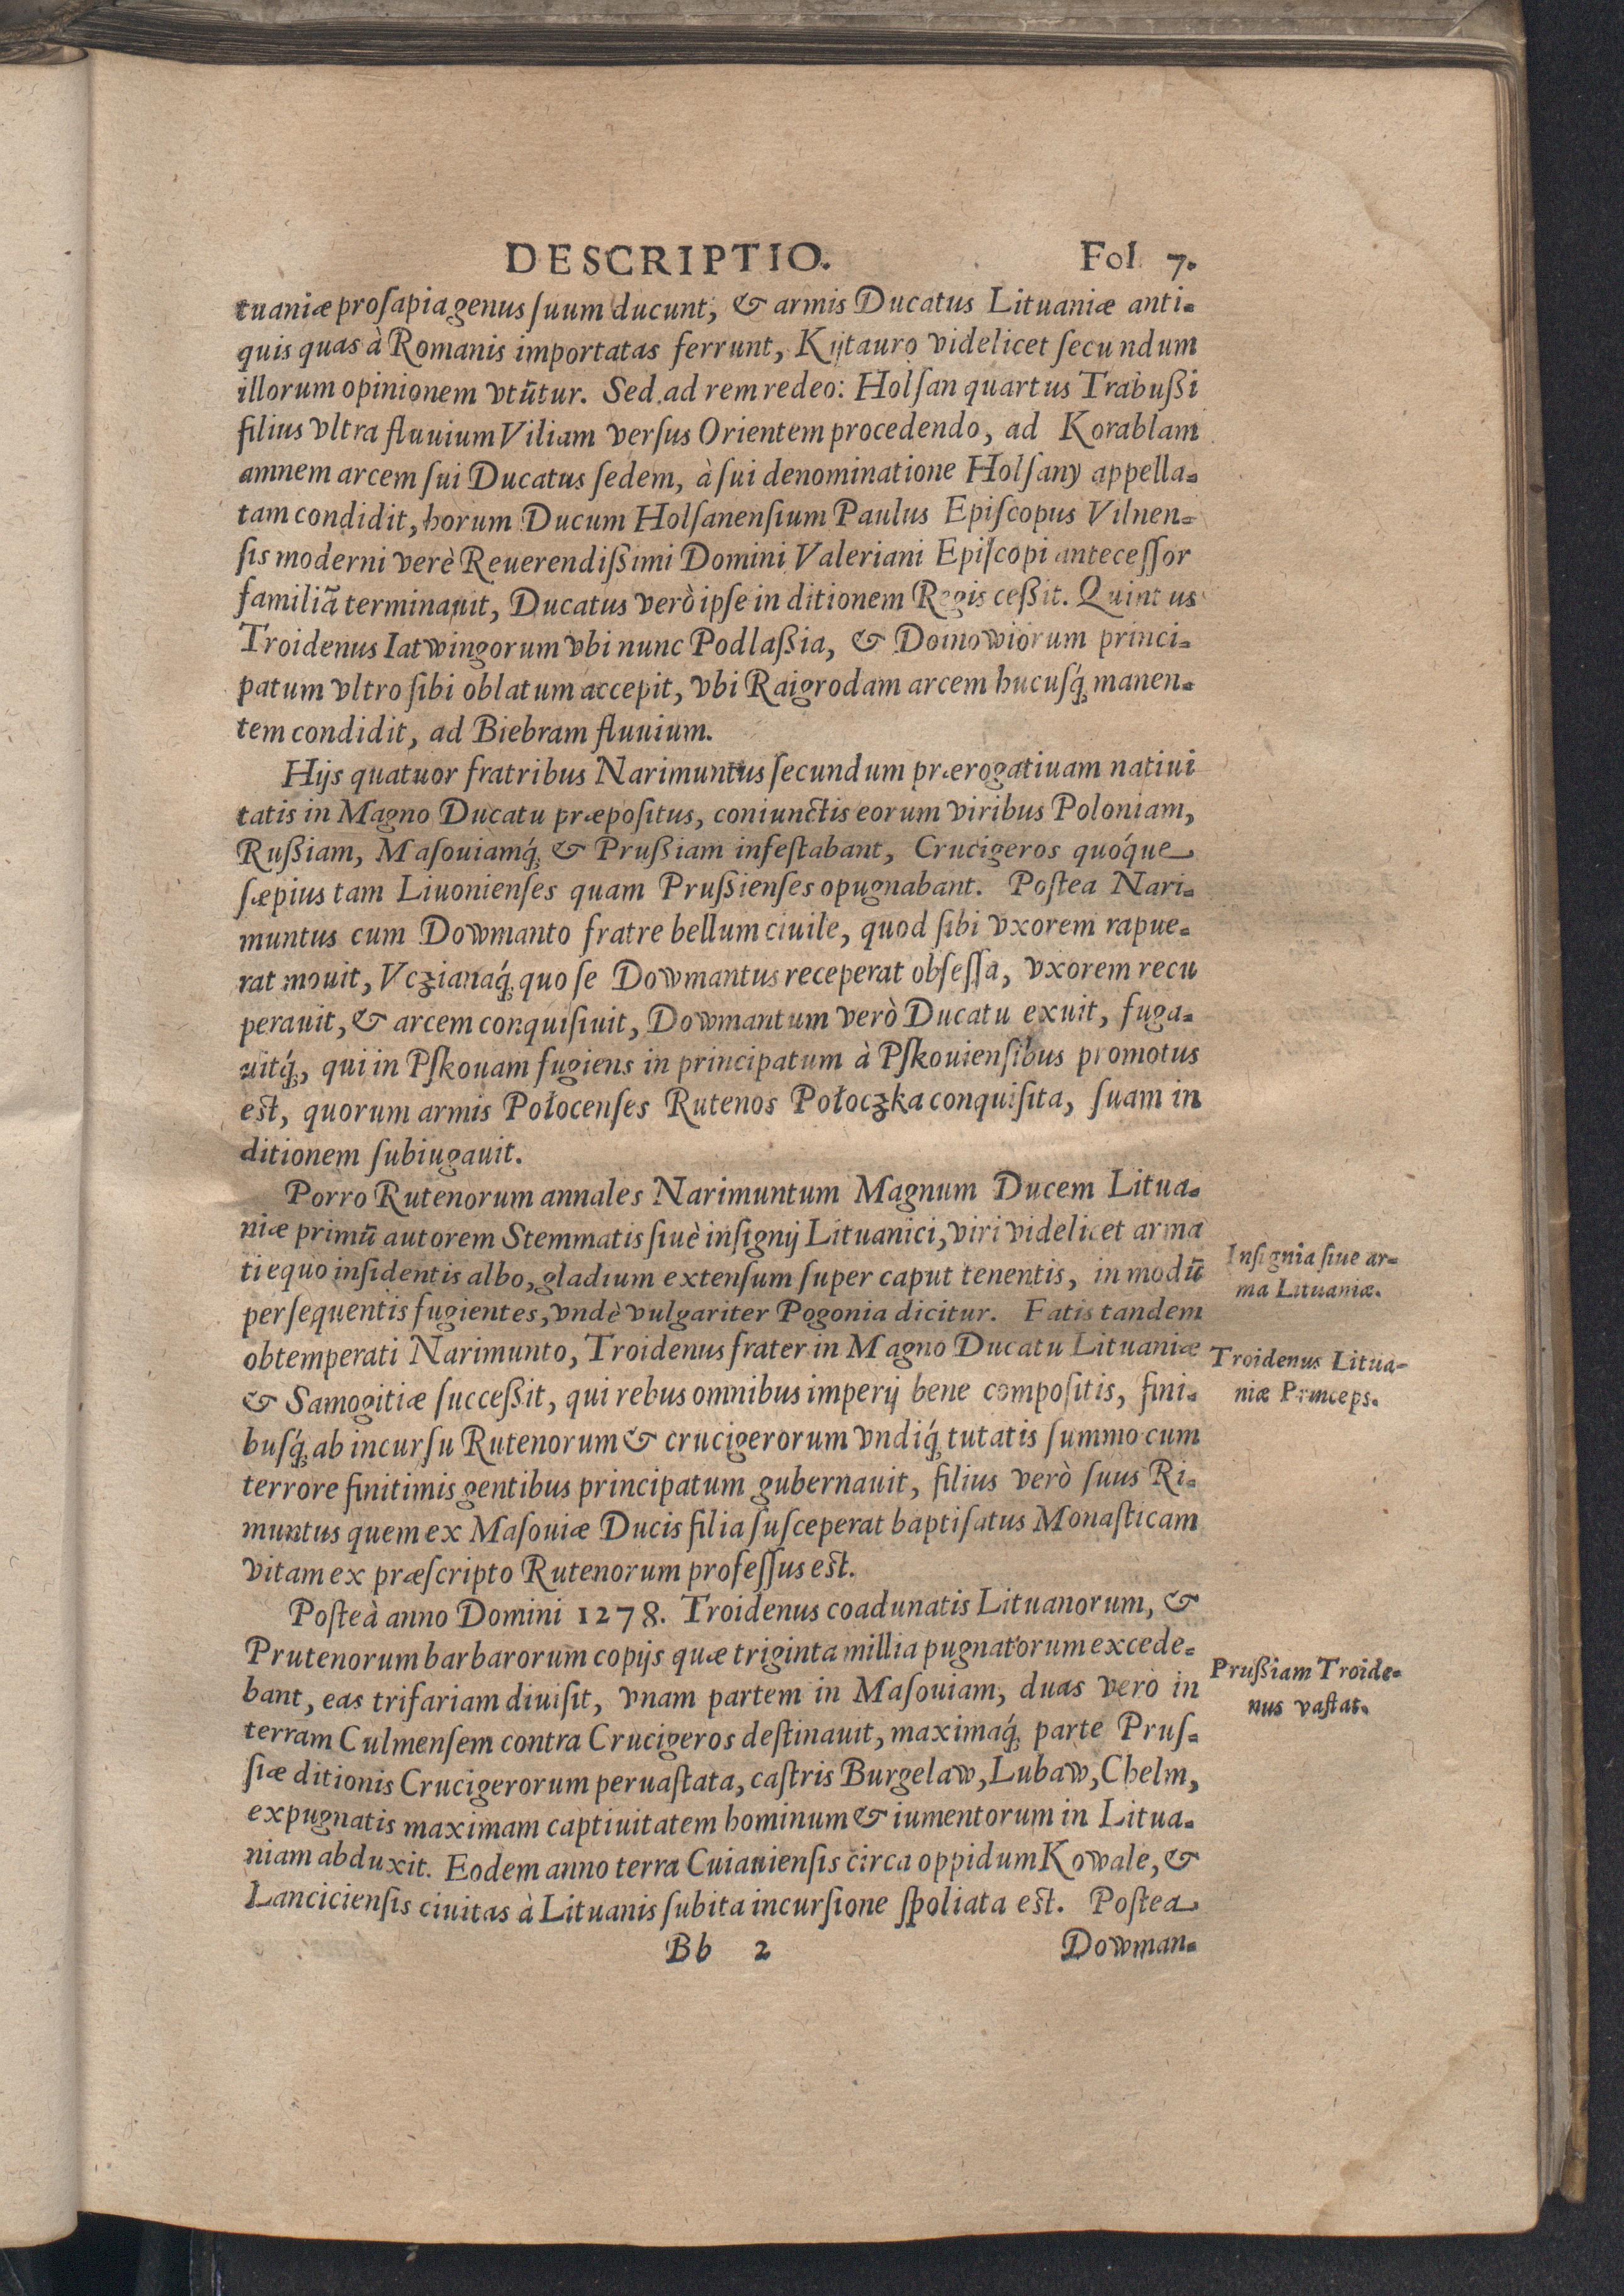 DESCRIPTIO. Fol. 7.
tuaniæ prosapia genus suum ducunt, & armis Ducatus Lituaniæ anti-
quis quas à Romanis importatas ferrunt, Kijtauro videlicet secundum
illorum opinionem vtūtur. Sed ad rem redeo: Holſan quartus Trabußi
filius vltra fluuium Viliam verſus Orientem procedendo, ad Korablam
amnem arcem ſui Ducatus ſedem, à ſui denominatione Holſany appella-
tam condidit, horum Ducum Holſanenſium Paulus Epiſcopus Vilnen-
ſis moderni verè Reuerendißimi Domini Valeriani Epiſcopi anteceſſor
familiã terminauit, Ducatus verò ipſe in ditionem Regis ceßit. Quintus
Troidenus Iatwingorum vbi nunc Podlaßia, & Doinowiorum princi-
patum vltro ſibi oblatum accepit, vbi Raigrodam arcem hucuſq́; manen-
tem condidit, ad Biebram fluuium.
Hijs quatuor fratribus Narimuntus ſecundum prærogatiuam natiui
tatis in Magno Ducatu præpoſitus, coniunctis eorum viribus Poloniam,
Rußiam, Maſouiamq́; & Prußiam infeſtabant, Crucigeros quóque
ſæpius tam Liuonienſes quam Prußienſes opugnabant. Poſtea Nari-
muntus cum Dowmanto fratre bellum ciuile, quod ſibi vxorem rapue-
rat mouit, Vczianaq́; quo ſe Dowmantus receperat obſeſſa, vxorem recu
perauit, & arcem conquiſiuit, Dowmantum verò Ducatu exuit, fuga-
uitq́;, qui in Pſkouam fugiens in principatum à Pſkouienſibus promotus
est, quorum armis Połocenſes Rutenos Połoczka conquiſita, ſuam in
ditionem ſubiugauit.
Porro Rutenorum annales Narimuntum Magnum Ducem Litua-
niæ primū autorem Stemmatis ſiuè inſignij Lituanici, viri videlicet arma
ti equo inſidentis albo, gladium extenſum ſuper caput tenentis, in modū
perſequentis fugientes, vndè vulgariter Pogonia dicitur. Fatis tandem
obtemperati Narimunto, Troidenus frater in Magno Ducatu Lituaniæ
& Samogitiæ ſucceßit, qui rebus omnibus imperij bene compoſitis, fini-
buſq́; ab incurſu Rutenorum & crucigerorum vndiq́; tutatis ſummo cum
terrore finitimis gentibus principatum gubernauit, filius verò ſuus Ri-
muntus quem ex Maſouiæ Ducis filia ſuſceperat baptiſatus Monaſticam
vitam ex præſcripto Rutenorum profeſſus est.
Poſteà anno Domini 1278. Troidenus coadunatis Lituanorum, &
Prutenorum barbarorum copijs quæ triginta millia pugnatorum excede-
bant, eas trifariam diuiſit, vnam partem in Maſouiam, duas verò in
terram Culmenſem contra Crucigeros deſtinauit, maximaq́; parte Pruſ-
ſiæ ditionis Crucigerorum peruaſtata, caſtris Burgelaw, Lubaw, Chelm,
expugnatis maximam captiuitatem hominum & iumentorum in Litua-
niam abduxit. Eodem anno terra Cuiauienſis circa oppidum Kowale, &
Lancicienſis ciuitas à Lituanis ſubita incurſione ſpoliata est. Poſtea
Bb 2 Dowman-
Inſignia ſiue ar-
ma Lituaniæ.
Troidenus Litua-
niæ Princeps.
Prußiam Troide-
nus vaſtat.